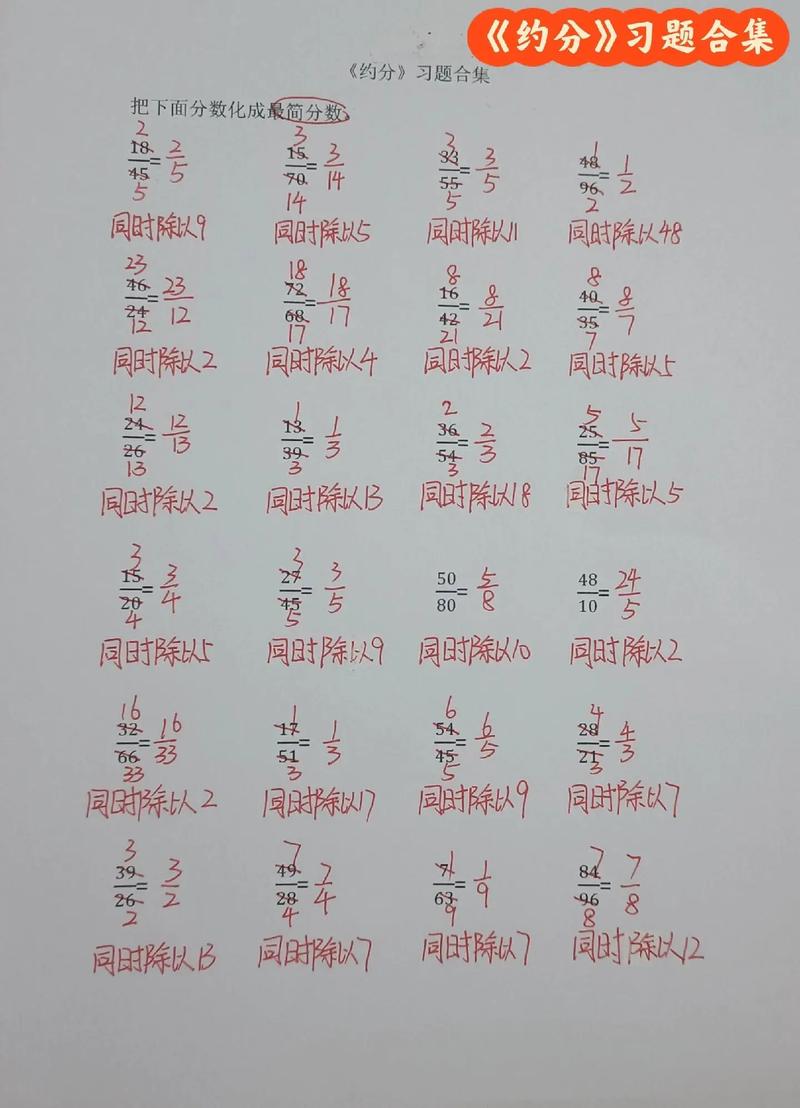 《约分》习题合集
《约分》习题合集
把下面分数化成最简分数。
2 3 3 1
18/45=2/5 15/70=3/14 33/55=3/5 48/96=1/2
5 14 5 2
同时除以9 同时除以5 同时除以11 同时除以48
23 18 8 8
46/24=23/12 72/68=18/17 16/42=8/21 40/35=8/7
12 17 21 7
同时除以2 同时除以4 同时除以2 同时除以5
12 1 2 5
24/26=12/13 13/39=1/3 36/54=2/3 25/85=5/17
13 3 3 17
同时除以2 同时除以13 同时除以18 同时除以5
3 3
15/20=3/4 27/45=3/5 50/80=5/8 48/10=24/5
4 5
同时除以5 同时除以9 同时除以10 同时除以2
16 1 6 4
32/66=16/33 17/51=1/3 54/45=6/5 28/21=4/3
33 3 5 3
同时除以2 同时除以17 同时除以9 同时除以7
3 7 1 7
39/26=3/2 49/28=7/4 7/63=1/9 84/96=7/8
2 4 9 8
同时除以13 同时除以7 同时除以7 同时除以12